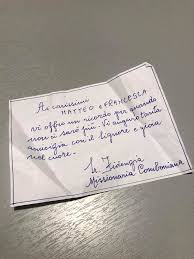 Ai carissimi
MATTEO e FRANCESCA
vi offro un ricordo per quando
non ci sarò più. Vi auguro tanta
amicizia con il liquore e gioia
nel cuore.
Sr.
Missionaria Comboniana